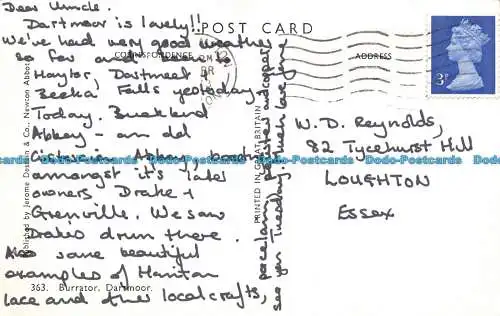 Dear Uncle.
Dartmoor is lovely!!
We've had very good weather
so far and been to
Haytor, Dartmeet &
Becka Falls yesterday.
Today. Buckland
Abbey - an old
Cistercian Abbey, boasting
amongst it's later
owners Drake +
Grenville. We saw
Drakes drum there.
Also some beautiful
examples of Honiton
lace and other local crafts,
porcelain, pewter and copper
see you Tuesday. Much love
POST CARD
CORRESPONDENCE
ADDRESS
3P
W. D. Reynolds,
82 Tycehurst Hill
LOUGHTON
ESSEX
PRINTED IN GREAT BRITAIN
Published by Jerome Dessain & Co., Newton Abbot
363. Burrator, Dartmoor.
Dodo-Postcards Dodo-Postcards Dodo-Postcards Dodo-Postcards Dodo-Postcards